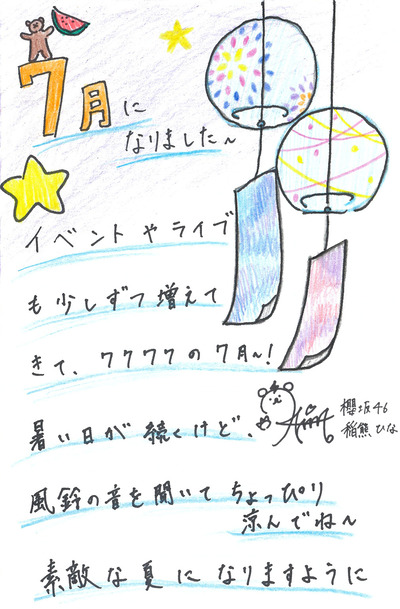 7月に
なりました〜
イベントやライブ
も少しずつ増えて
きて、ワクワクの7月〜!
暑い日が続くけど、
櫻坂46
稲熊ひな
風鈴の音を聞いてちょっぴり
涼んでね〜
素敵な夏になりますように